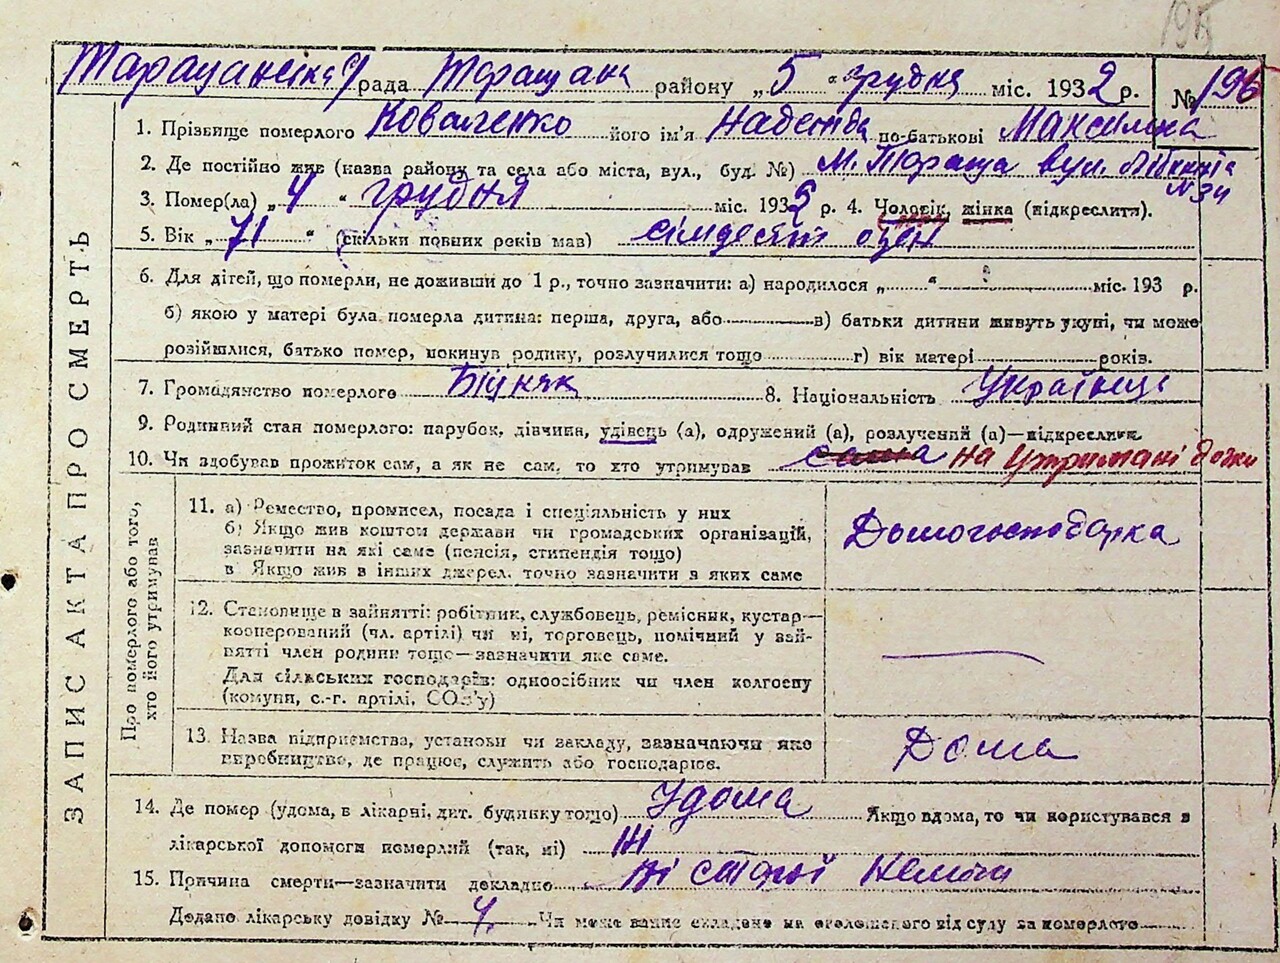 195
Таращанська рада Таращан району „ 5 “ грудня міс. 1932 р. № 196
1. Прізвище померлого Коваленко його ім'я Надежда по-батькові Максимівна
2. Де постійно жив (назва району та села або міста, вул., буд. №) м. Тараща вул.
N 34
3. Помер(ла) „ 4 “ грудня міс. 1932 р. 4. Чоловік, жінка (підкреслити).
5. Вік „ 71 “ (скільки повних років мав) сімдесят оден
6. Для дітей, що померли, не доживши до 1 р., точно зазначити: а) народилося „ “ міс. 193 р.
б) якою у матері була померла дитина: перша, друга, або в) батьки дитини живуть укупі, чи може
розійшлися, батько помер, покинув родину, розлучилися тощо г) вік матері років.
7. Громадянство померлого Бідняк 8. Національність Українець
9. Родинний стан померлого: парубок, дівчина, удівець (а), одружений (а), розлучений (а)—підкреслити.
10. Чи здобував прожиток сам, а як не сам, то хто утримував сама на утримані дочки
ЗАПИС АКТА ПРО СМЕРТЬ
Про померлого або того,
хто його утримував
11. а) Ремество, промисел, посада і спеціяльність у них
б) Якщо жив коштом держави чи громадських організацій,
зазначити на які саме (пенсія, стипендія тощо)
в Якщо жив в інших джерел, точно зазначити в яких саме
Домогосподарка
12. Становище в зайнятті: робітник, службовець, ремісник, кустар—
кооперований (чл. артілі) чи ні, торговець, помічний у зай-
нятті член родини тощо—зазначити яке саме.
Для сільських господарів: одноосібник чи член колгоспу
(комуни, с.-г. артілі, СОЗ'у)
13. Назва підприємства, установи чи закладу, зазначаючи яке
виробництво, де працює, служить або господарює.
Дома
14. Де помер (удома, в лікарні, дит. будинку тощо) Удома Якщо вдома, то чи користувався з
лікарської допомоги померлий (так, ні) Ні
15. Причина смерти—зазначити докладно від старої немочи
Додано лікарську довідку № Чи може запис складено на оголошеного від суду за померлого